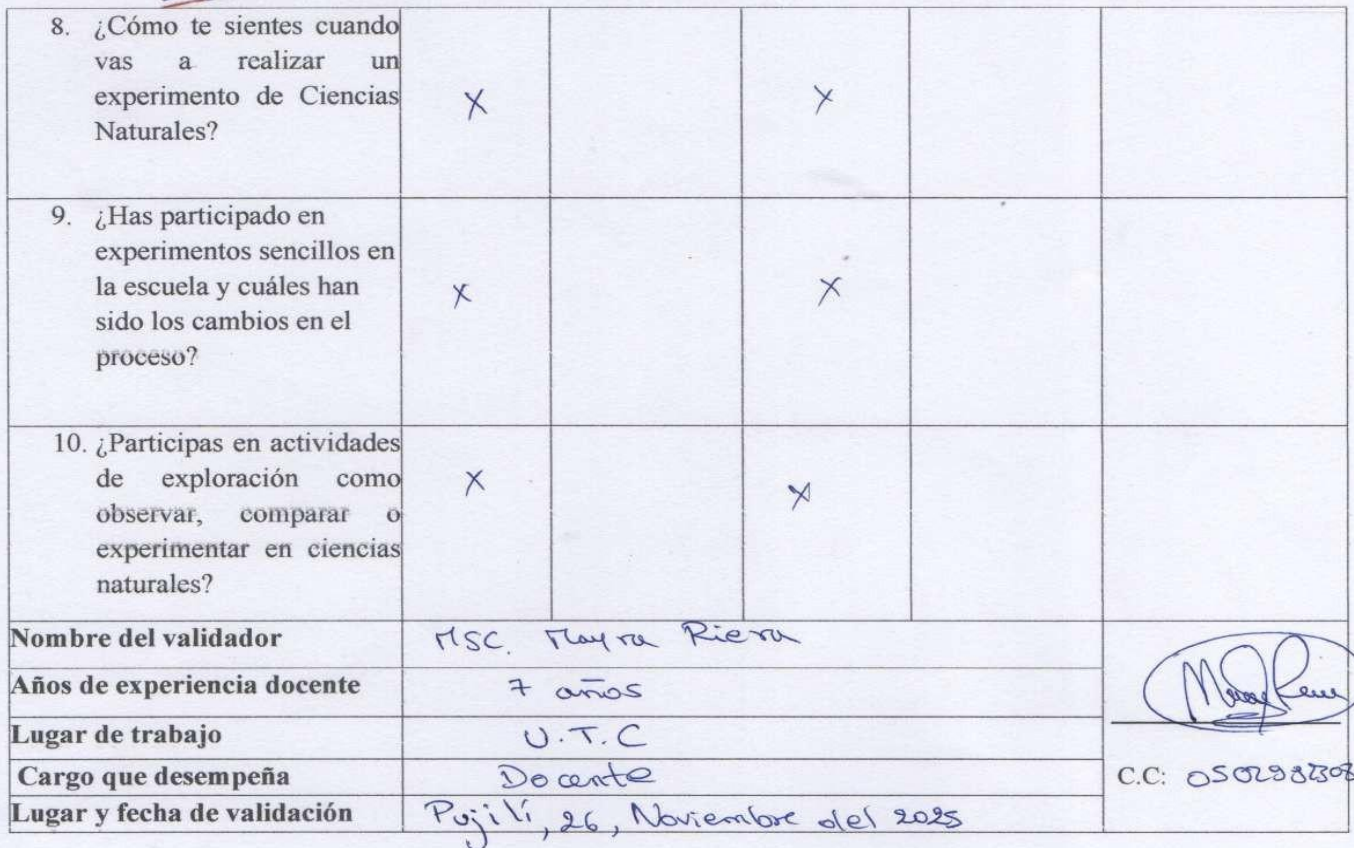 8. ¿Cómo te sientes cuando
vas a realizar un
experimento de Ciencias
Naturales?
X X
9. ¿Has participado en
experimentos sencillos en
la escuela y cuáles han
sido los cambios en el
proceso?
X X
10. ¿Participas en actividades
de exploración como
observar, comparar o
experimentar en ciencias
naturales?
X X
Nombre del validador MSC. Mayra Riera
Años de experiencia docente 7 años
Lugar de trabajo U.T.C
Cargo que desempeña Docente
C.C:
Lugar y fecha de validación Pujilí, 26, Noviembre del 2025